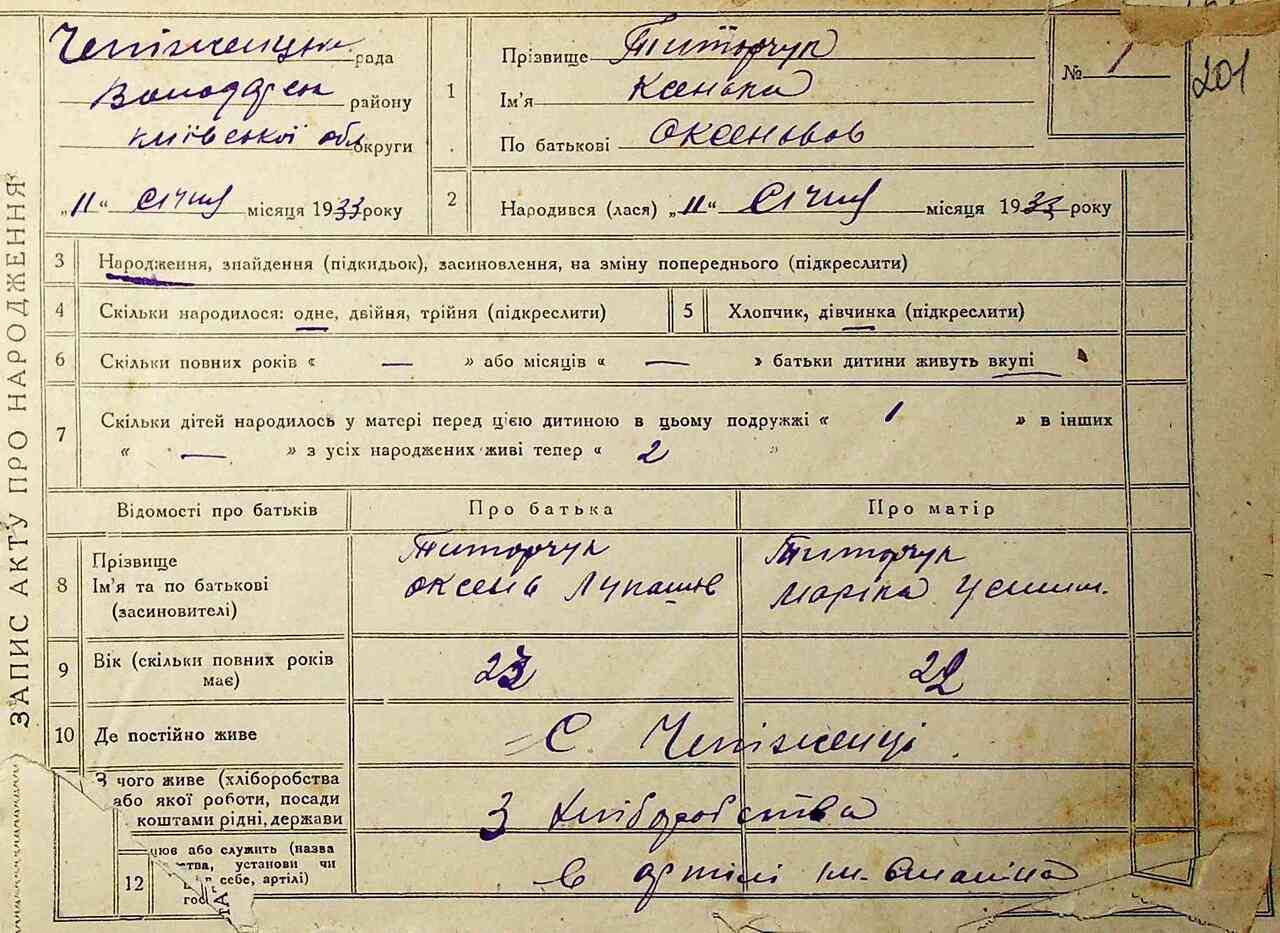 ЗАПИС АКТУ ПРО НАРОДЖЕННЯ
Чепіжинцька рада
Володарськ району
Київської обл округи
„11“ січня місяця 1933 року
1
Прізвище Титорчук
Ім'я Ксенька
По батькові Оксенова
№ 1
201
2
Народився (лася) „11“ січня місяця 1933 року
3 Народження, знайдення (підкидьок), засиновлення, на зміну попереднього (підкреслити)
4 Скільки народилося: одне, двійня, трійня (підкреслити)
5 Хлопчик, дівчинка (підкреслити)
6 Скільки повних років « — » або місяців « — » батьки дитини живуть вкупі
7 Скільки дітей народилось у матері перед цією дитиною в цьому подружжі « 1 » в інших
« — » з усіх народжених живі тепер « 2 »
Відомості про батьків Про батька Про матір
8 Прізвище
Ім'я та по батькові
(засиновителі)
Титорчук
Оксень Лукашів
Титорчук
Марійка
9 Вік (скільки повних років
має)
23
22
10 Де постійно живе С. Чепіжинці
З чого живе (хліборобства
або якої роботи, посади
коштами рідні, держави
З хліборобства
12
цює або служить (назва
тва, установи чи
себе, артілі)
гос
в артілі ім. Сталіна